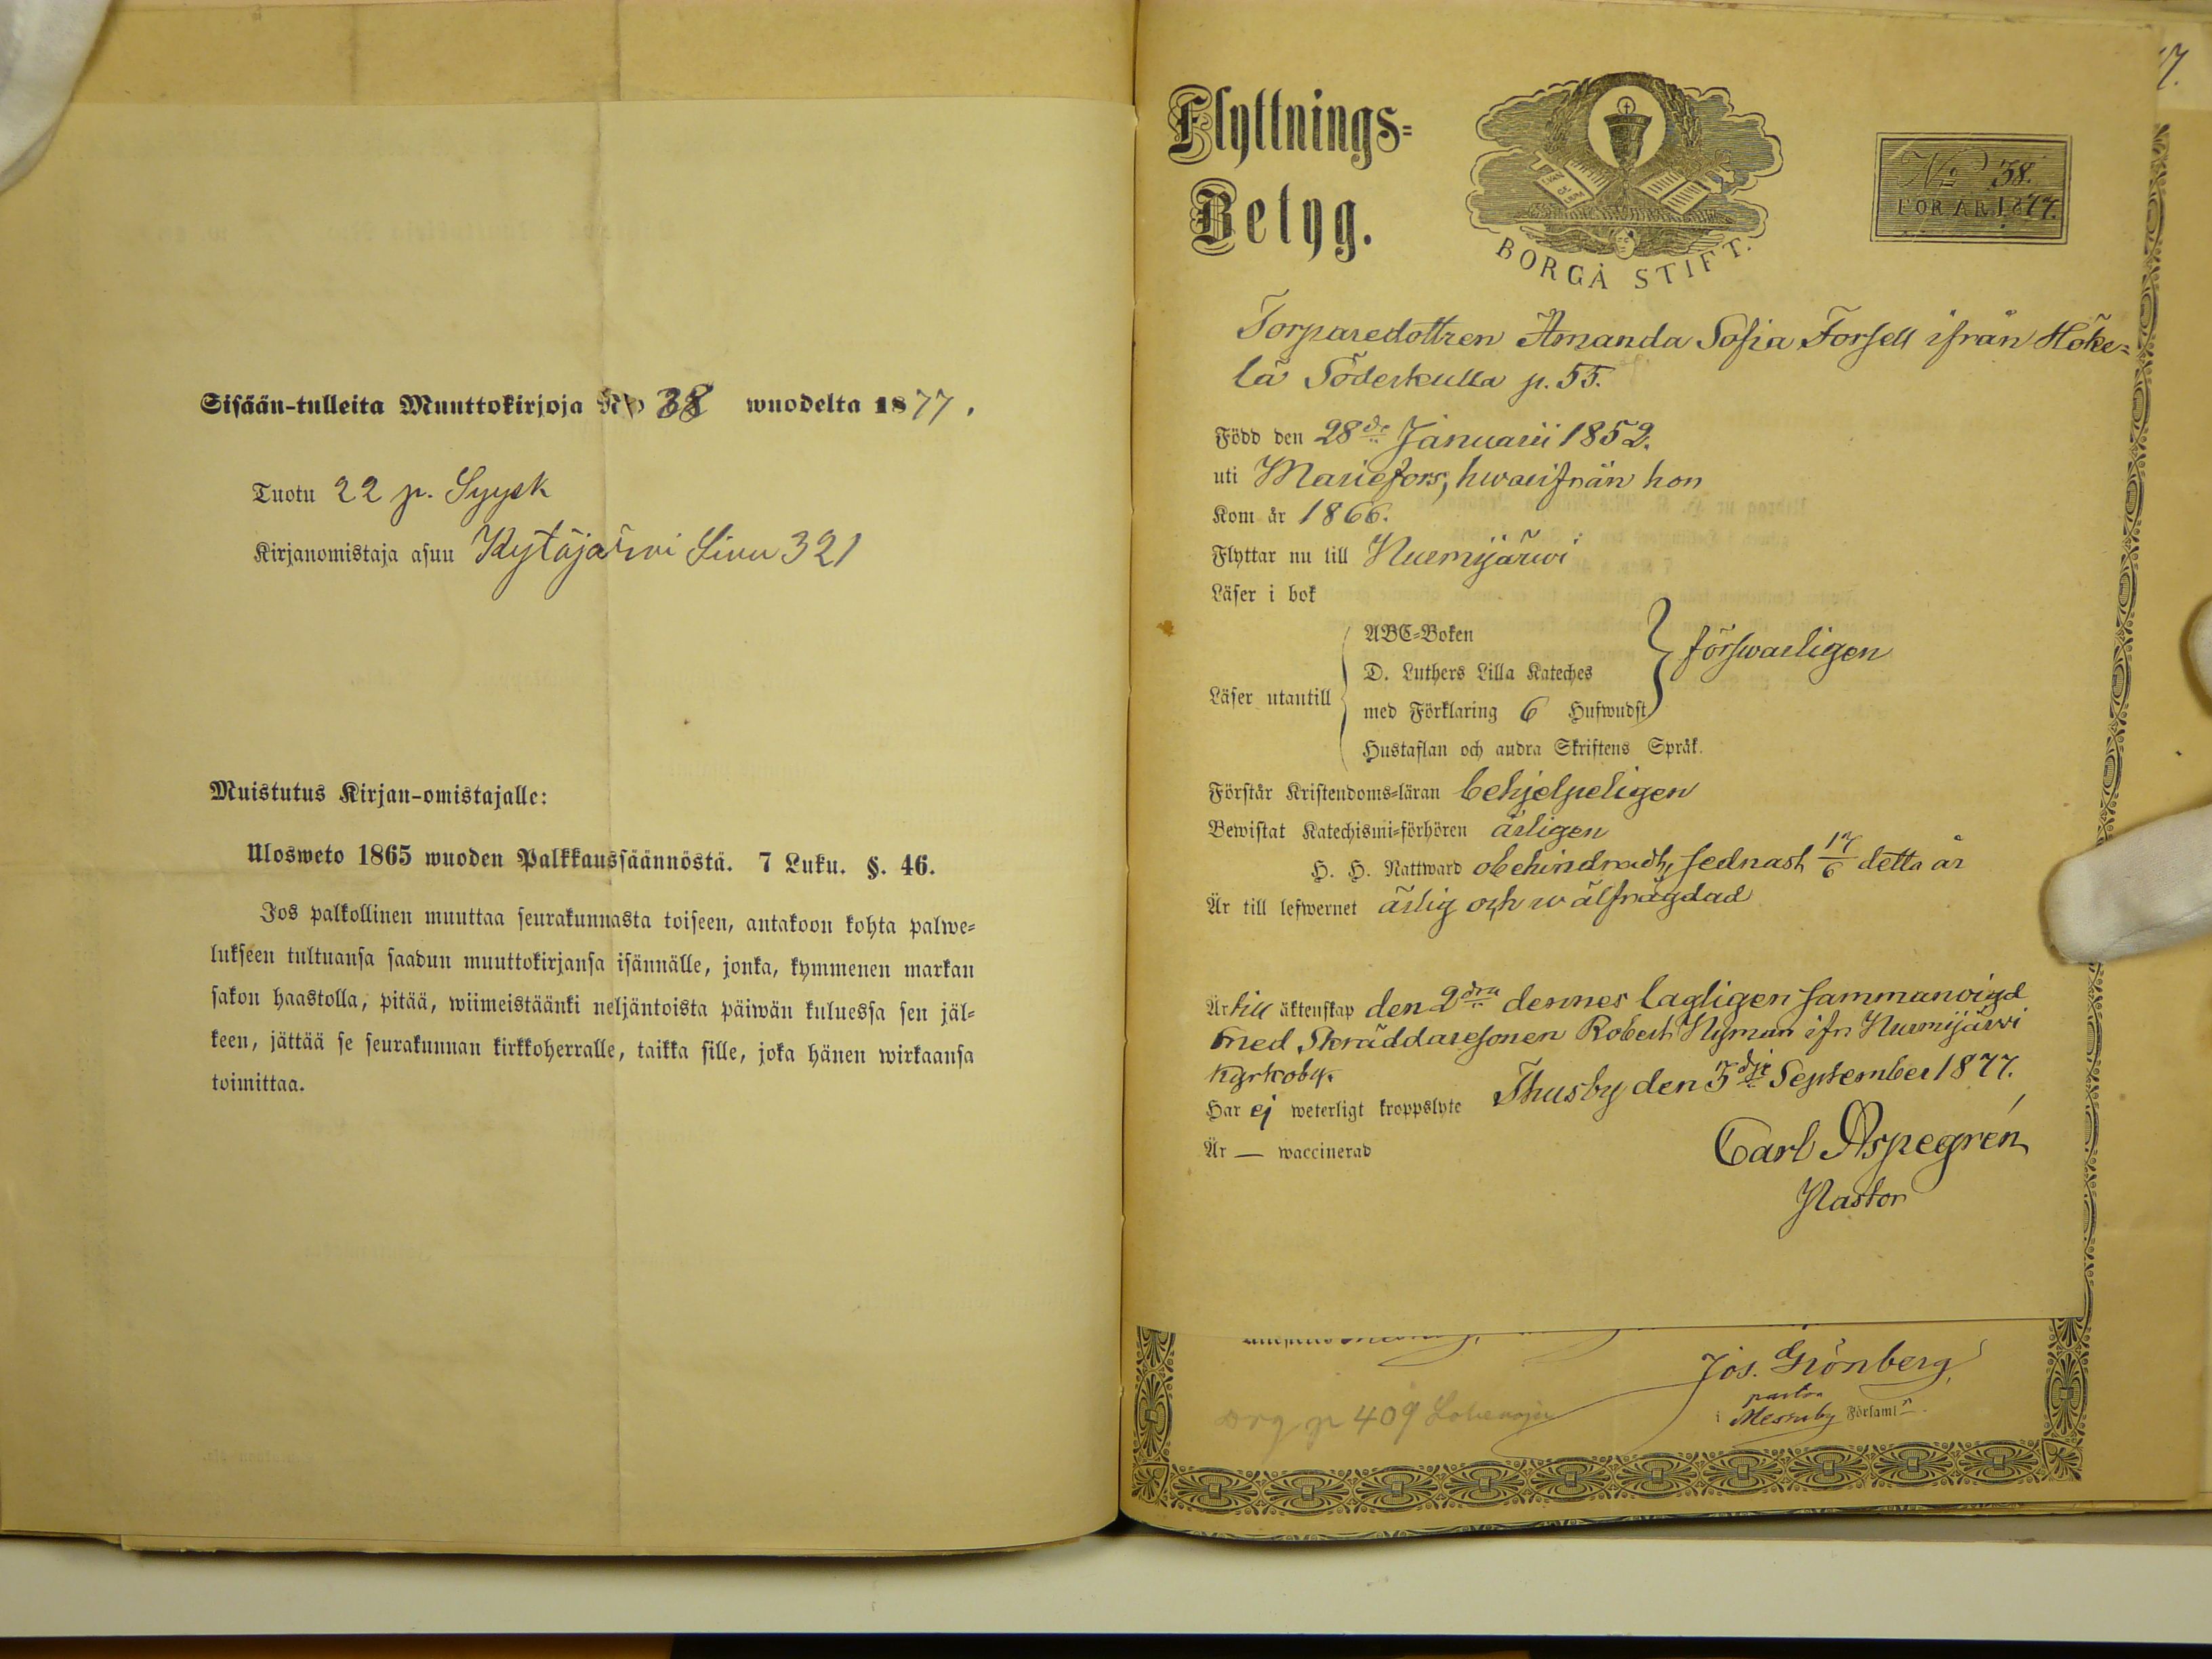 Sisään-tulleita Muuttokirjoja No 38 wuodelta 1877.
Tuotu 22 p. Syysk
Kirjanomistaja asuu Kytäjärwi Siwu 321
Muistutus Kirjan-omistajalle:
Ulosweto 1865 wuoden Palkkaussäännöstä. 7 Luku. §. 46.
Jos palkollinen muuttaa seurakunnasta toiseen, antakoon kohta palwe=
lukseen tultuansa saadun muuttokirjansa isännälle, jonka, kymmenen markan
sakon haastolla, pitää, wiimeistäänki neljäntoista päiwän kuluessa sen jäl=
keen, jättää se seurakunnan kirkkoherralle, taikka sille, joka hänen wirkaansa
toimittaa.
Flyttnings=
Betyg.
EVAN
GE
LIUM
BORGÅ STIFT.
No 38.
FÖR ÅR 1877.
Torparedottren Amanda Sofia Forsell ifrån Höke=
lä Söderkulla p. 55.
Född den 28de Januarii 1852.
uti Mariefors, hwarifrån hon
Kom år 1866.
Flyttar nu till Nurmijärwi
Läser i bok
ABC=Boken
D. Luthers Lilla Kateches
försvarligen
Läser utantill
med Förklaring 6 Hufwudst
Hustaflan och andra Skriftens Språk.
Förstår Kristendoms=läran behjelpeligen
Bewistat Katechismi=förhören årligen
H. H. Nattward obehindradt, sednast 17/6 detta år
Är till lefwernet ärlig och wälfrägdad
Är till äktenskap den 2dra dennes lagligen sammanvigd
med Skräddaresonen Robert Nyman ifn Nurmijärwi
Kyrkoby.
Thusby den 3dje September 1877.
Har ej weterligt kroppslyte
Carl Aspegrén
Är — waccinerad
Pastor
Jos. Grönberg
pastor
i Messuby Församl:n
org p 409
7.